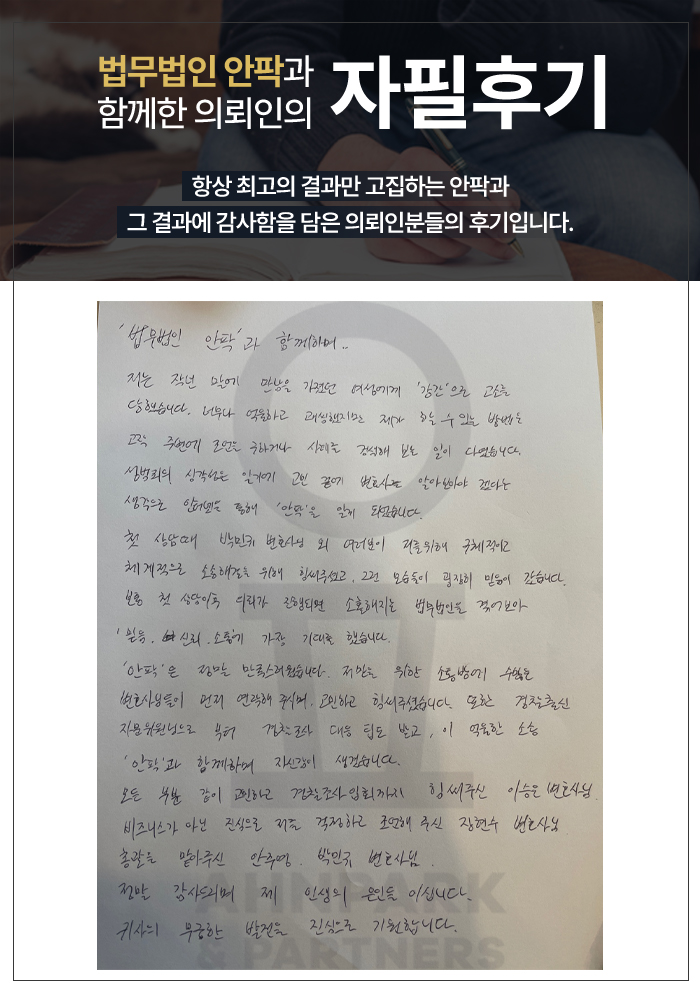 법무법인 안팍과
함께한 의뢰인의
자필후기
항상 최고의 결과만 고집하는 안팍과
그 결과에 감사함을 담은 의뢰인분들의 후기입니다.
'법무법인 안팍'과 함께하며..
저는 작년 말에 만남을 가졌던 여성에게 '강간'으로 고소를
당했습니다. 너무나 억울하고 괘씸했지만 제가 할 수 있는 방법은
고작 주변에 조언을 구하거나 사례를 검색해 보는 일이 다였습니다.
성범죄의 심각성은 알기에 고민 끝에 변호사를 알아보아야 겠다는
생각으로 인터넷을 통해 '안팍'을 알게 되었습니다.
첫 상담때 박민규 변호사님 외 여러분이 저를위해 구체적이고
체계적으로 소송해결을 위해 힘써주셨고, 그런 모습들이 굉장히 믿음이 갔습니다.
보통 첫 상담이후 의뢰가 진행되면 소홀해지는 법무법인을 겪어보아
'믿음, 신뢰, 소통'이 가장 기대를 했습니다.
'안팍'은 정말 만족스러웠습니다. 저만을 위한 소통방에 수많은
변호사님들이 먼저 연락해 주시며, 고민하고 힘써주셨습니다. 또한 경찰출신
자문위원님으로 부터 경찰조사 대응 팁도 받고, 이 억울한 소송
'안팍'과 함께하며 자신감이 생겼습니다.
모든 부분 같이 고민하고 경찰조사 입회까지 힘써주신 이승은 변호사님
비즈니스가 아닌 진심으로 저를 걱정하고 조언해 주신 장현수 변호사님
총괄을 맡아주신 안주영, 박민규 변호사님.
정말 감사드리며 제 인생의 은인들 이십니다.
귀사의 무궁한 발전을 진심으로 기원합니다.
AHNPARK
& PARTNERS